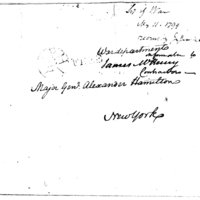 Sec of War
May 11. 1799
War department
James McHenry
Contractors
Major Genl. Alexander Hamilton
New York